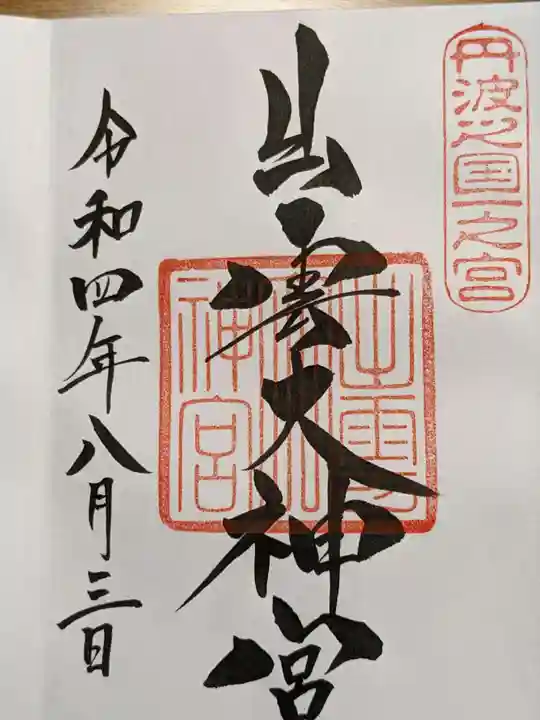 丹波之国一之宮
出雲大神宮
出雲大神宮
令和四年八月三日